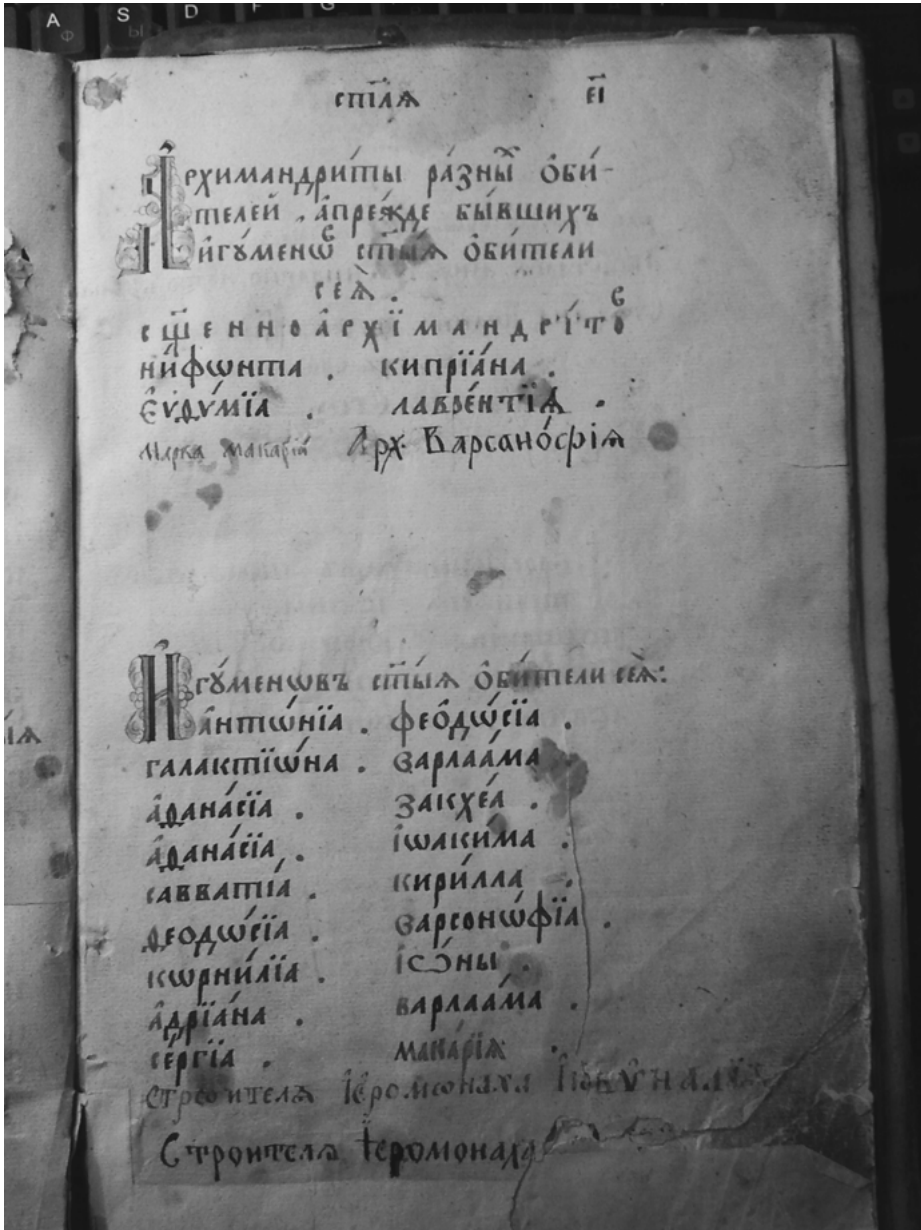 A S D F G
Ф Ы
ст҃ля є҃і
Архимандри́ты ра́зны́ оби́-
телей . а҆пре́жде бы́вшихъ
и҆гꙋ́менѡ́в ст҃ы́ѧ ѻ҆би́тели
сеѧ̀ .
сщ҃енноа҆рхїмандрі́тов
ни́фѡнта . кипрїа́на .
єѵѳѵ́мїа . лавре́нтїѧ .
Марка макарїа Арх Варсано́фїѧ
И҆гꙋ́менѡвъ ст҃ы́ѧ ѻ҆би́тели сеѧ̀:
а҆нтѡ́нїа . феѻдѡ́сїа .
галактїѡ́на . варлаа́ма
а҆ѳана́сїа . закхе́а .
а҆ѳана́сїа . і҆ѡаки́ма .
савватїа . кири́лла .
ѳеодѡ́сїа . варсонѡ́фїа .
кѡрни́лїа . і҆ѡ́ны .
а҆дрїа́на . варлаа́ма .
се́ргїа . мака́рїѧ .
строителѧ І҆еромонаха І҆ꙋвꙋналїѧ
Строителѧ Іеромонаха